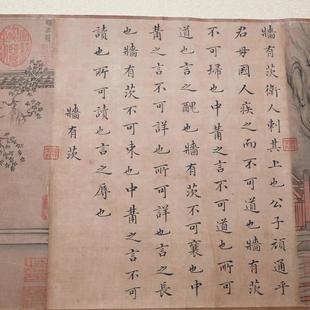 牆有茨衛人刺其上也公子頑通乎
君母國人疾之而不可道也牆有茨
不可掃也中冓之言不可道也所可
道也言之醜也牆有茨不可襄也中
冓之言不可詳也所可詳也言之長
也牆有茨不可束也中冓之言不可
讀也所可讀也言之辱也
牆有茨